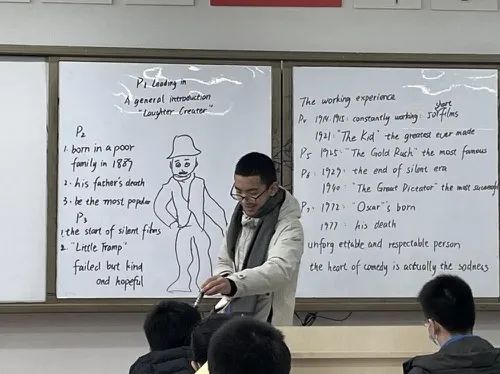 P1 Leading in
A general introduction
"Laughter Creater"
P2
1. born in a poor
family in 1889
2. his father's death
3. be the most popular
P3
1. the start of silent films
2. "Little Tramp"
failed but kind
and hopeful
The working experience
P4 1914-1915: constantly working: 50 short films
1921: "The Kid" the greatest ever made
P5 1925: "The Gold Rush" the most famous
P6 1927: the end of silent era
1940 "The Great Dictator" the most successful
P7 1972 "Oscar"s born
1977 his death
unforgettable and respectable person
the heart of comedy is actually the sadness